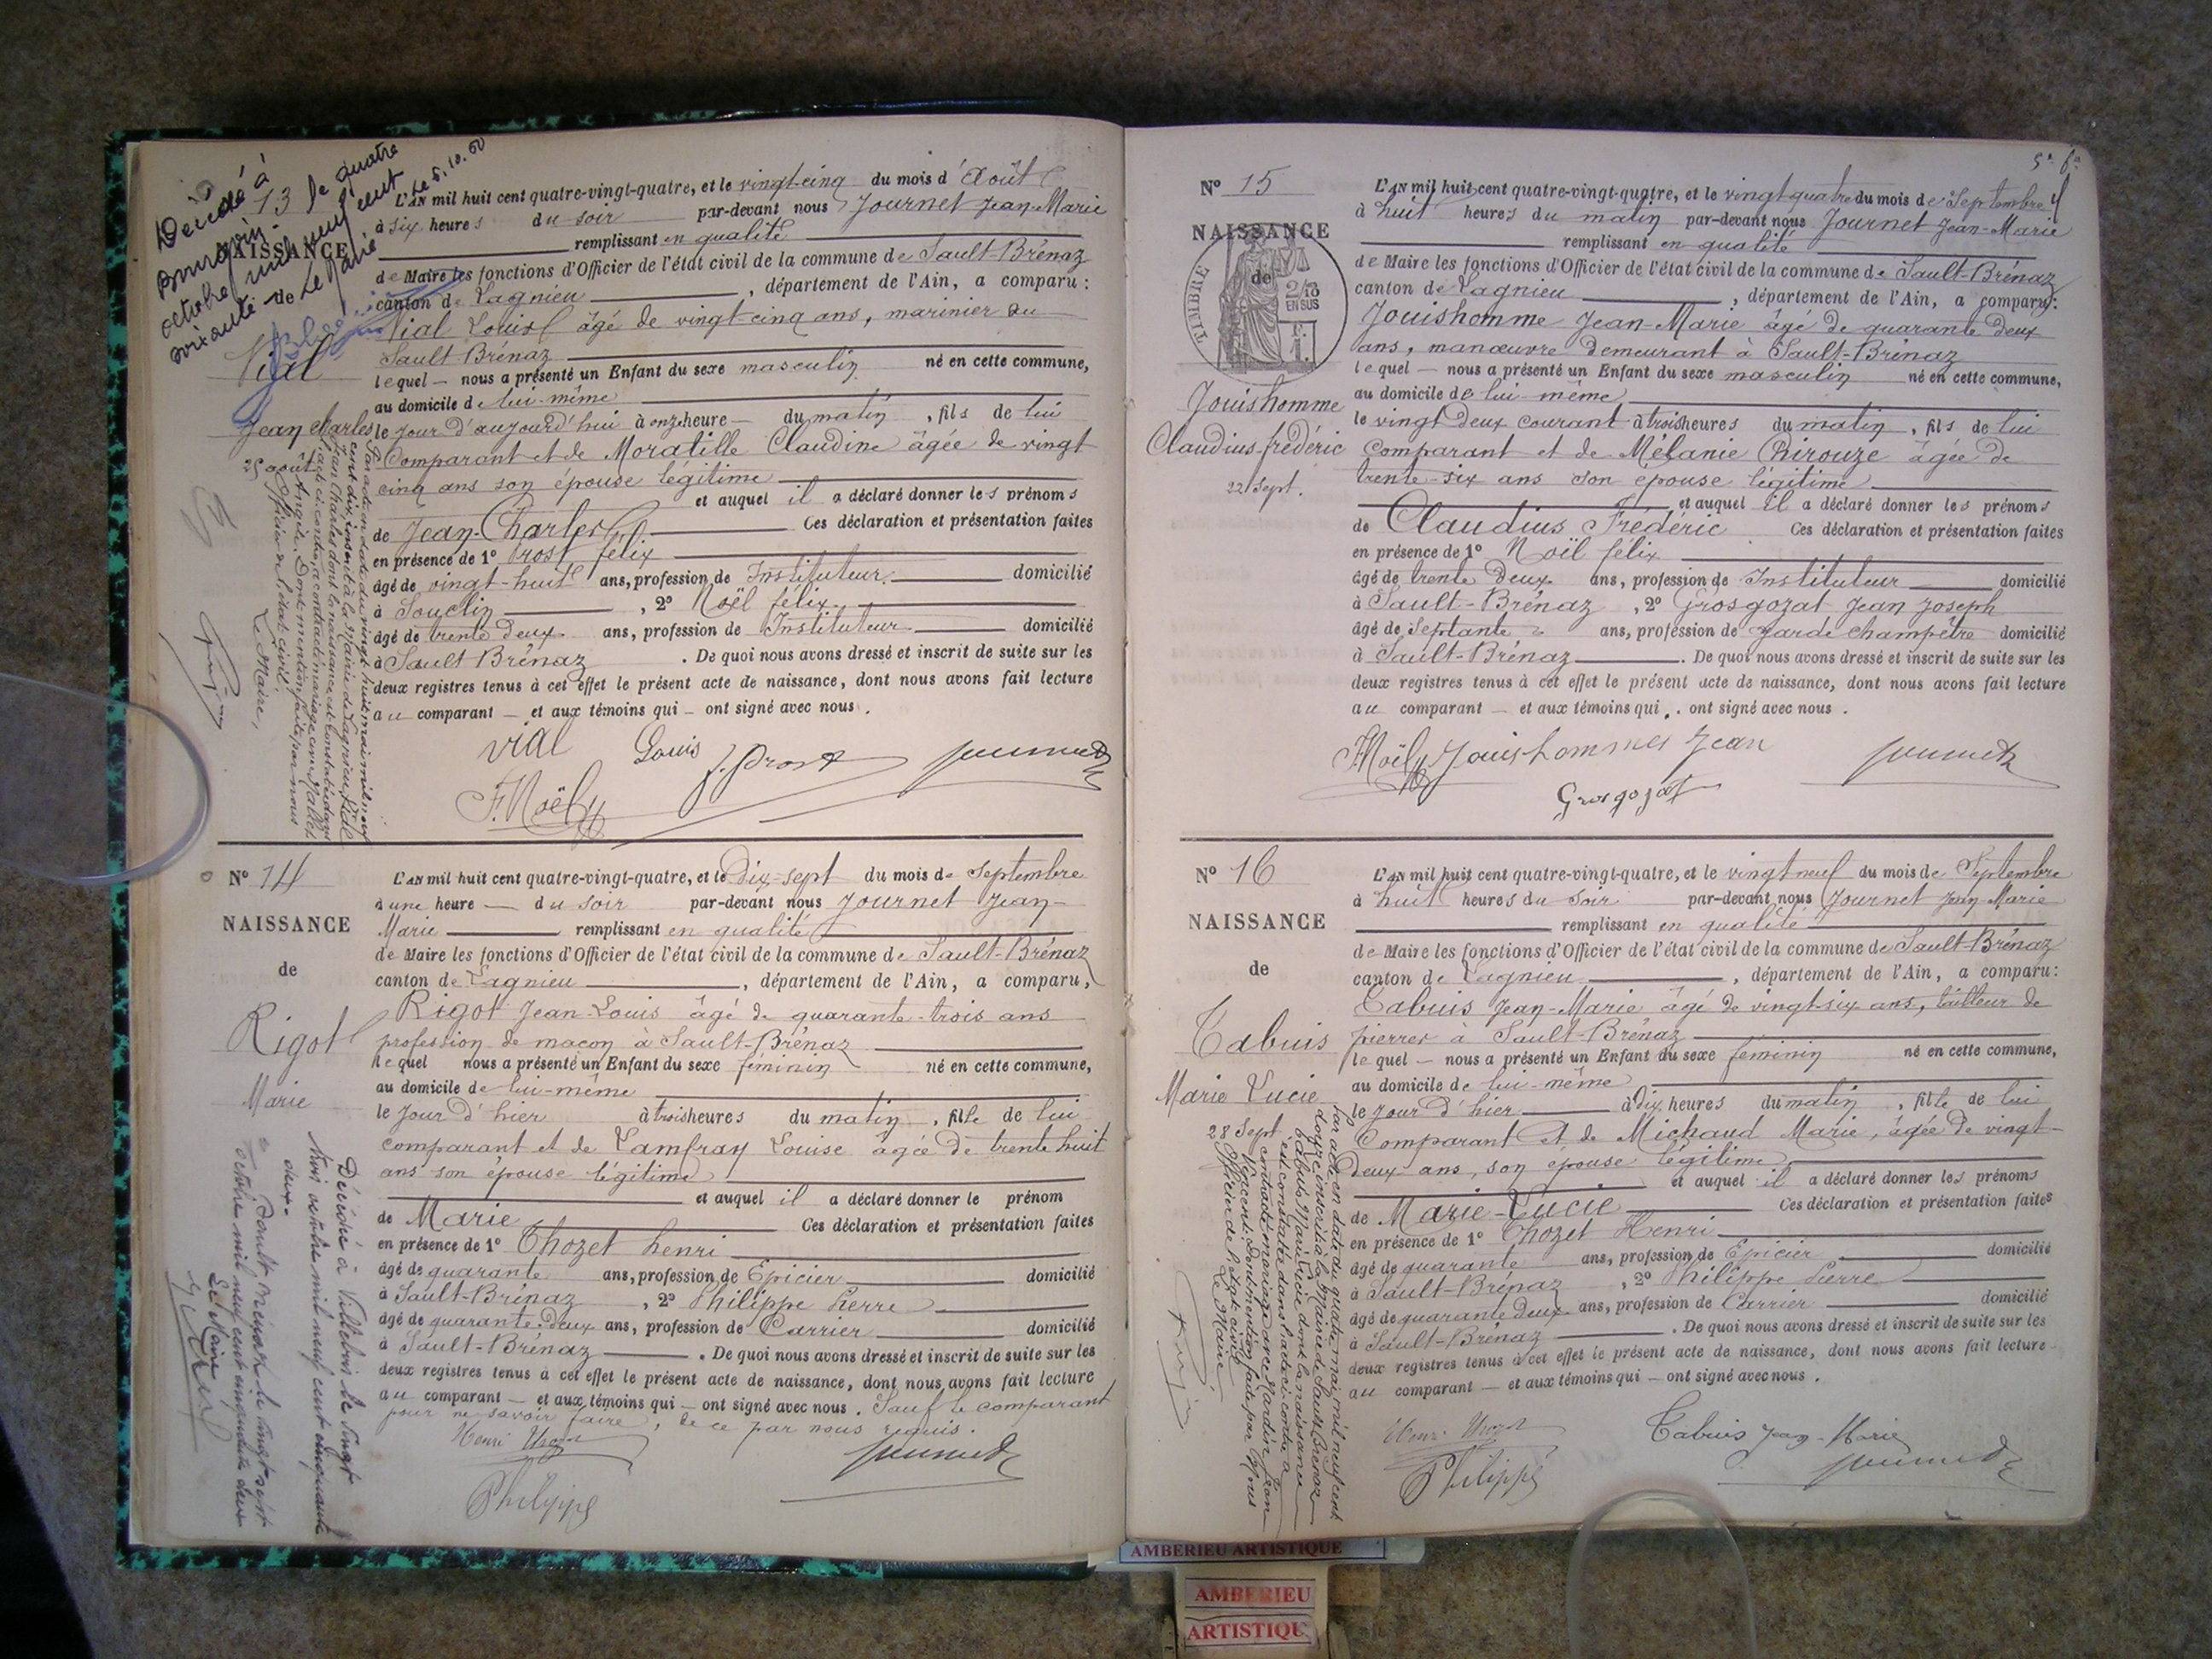 Décédé à
Bourgoin 13 le quatre
octobre mil neuf cent
soixante Le Maire
Le 5.10.60
NAISSANCE
Vial
Jean Charles
25 août
L'AN mil huit cent quatre-vingt-quatre, et le vingt-cinq du mois d'Août
à six heures du soir par-devant nous Journet Jean-Marie
remplissant en qualité
de Maire les fonctions d'Officier de l'état civil de la commune de Sault-Brénaz
canton de Lagnieu, département de l'Ain, a comparu :
Vial Louis âgé de vingt-cinq ans, marinier au
Sault-Brénaz
lequel nous a présenté un Enfant du sexe masculin né en cette commune,
au domicile de lui-même
le jour d'aujourd'hui à onze heure du matin, fils de lui
Comparant et de Moratille Claudine âgée de vingt
cinq ans son épouse légitime
et auquel il a déclaré donner les prénoms
de Jean-Charles Ces déclaration et présentation faites
en présence de 1° Prost félix
âgé de vingt-huit ans, profession de Instituteur domicilié
à Souclin, 2° Noël félix
âgé de trente deux ans, profession de Instituteur domicilié
à Sault Brénaz. De quoi nous avons dressé et inscrit de suite sur les
deux registres tenus à cet effet le présent acte de naissance, dont nous avons fait lecture
au comparant et aux témoins qui ont signé avec nous.
vial Louis F. Prost Journet
F. Noël
Par acte en date du vingt huit mai mil neuf
cent dix, inscrit à la Mairie de Lagnieu, Vial
Jean Charles dont la naissance est constatée dans
l'acte ci-contre, a contracté mariage avec
Dont mention faite par nous
Officier de l'état civil.
Le Maire,
N° 14
NAISSANCE
de
Rigot
Marie
L'AN mil huit cent quatre-vingt-quatre, et le Dix-sept du mois de Septembre
à une heure du soir par-devant nous Journet Jean-
Marie remplissant en qualité
de Maire les fonctions d'Officier de l'état civil de la commune de Sault-Brénaz
canton de Lagnieu, département de l'Ain, a comparu,
Rigot Jean-Louis âgé de quarante-trois ans
profession de maçon à Sault-Brénaz
lequel nous a présenté un Enfant du sexe féminin né en cette commune,
au domicile de lui-même
le jour d'hier à trois heures du matin, fille de lui
comparant et de Lamfray Louise âgée de trente huit
ans son épouse légitime
et auquel il a déclaré donner le prénom
de Marie Ces déclaration et présentation faites
en présence de 1° Thozet henri
âgé de quarante ans, profession de Epicier domicilié
à Sault-Brénaz, 2° Philippe Pierre
âgé de quarante-deux ans, profession de Carrier domicilié
à Sault-Brénaz. De quoi nous avons dressé et inscrit de suite sur les
deux registres tenus à cet effet le présent acte de naissance, dont nous avons fait lecture
au comparant et aux témoins qui ont signé avec nous. Sauf le comparant
pour ne savoir faire, de ce par nous requis.
Henri Thozet Journet
Philippe
Décédée à Villebois le vingt
trois octobre mil neuf cent cinquante
deux.
Sault Brénaz le vingt sept
octobre mil neuf cent cinquante deux
Le Maire
N° 15
NAISSANCE
de
TIMBRE
EN SUS
Jouishomme
Claudius frédéric
22 Sept.
L'AN mil huit cent quatre-vingt-quatre, et le vingt quatre du mois de Septembre
à huit heures du matin par-devant nous Journet Jean-Marie
remplissant en qualité
de Maire les fonctions d'Officier de l'état civil de la commune de Sault-Brénaz
canton de Lagnieu, département de l'Ain, a comparu :
Jouishomme Jean-Marie âgé de quarante deux
ans, manœuvre Demeurant à Sault-Brénaz
lequel nous a présenté un Enfant du sexe masculin né en cette commune,
au domicile de lui-même
le vingt deux courant à trois heures du matin, fils de lui
Comparant et de Mélanie Pirouze âgée de
trente-six ans son épouse légitime
et auquel il a déclaré donner les prénoms
de Claudius Frédéric Ces déclaration et présentation faites
en présence de 1° Noël félix
âgé de trente Deux ans, profession de Instituteur domicilié
à Sault-Brénaz, 2° Grosgozat Jean Joseph
âgé de Septante ans, profession de garde champêtre domicilié
à Sault-Brénaz. De quoi nous avons dressé et inscrit de suite sur les
deux registres tenus à cet effet le présent acte de naissance, dont nous avons fait lecture
au comparant et aux témoins qui ont signé avec nous.
F. Noël Jouishommes Jean Journet
Grosgozat
N° 16
NAISSANCE
de
Tabuis
Marie Lucie
28 Sept.
L'AN mil huit cent quatre-vingt-quatre, et le vingt neuf du mois de Septembre
à huit heures du soir par-devant nous Journet Jean Marie
remplissant en qualité
de Maire les fonctions d'Officier de l'état civil de la commune de Sault-Brénaz
canton de Lagnieu, département de l'Ain, a comparu :
Tabuis Jean-Marie âgé de vingt-six ans, tailleur de
pierres à Sault-Brénaz
lequel nous a présenté un Enfant du sexe féminin né en cette commune,
au domicile de lui-même
le jour d'hier à dix heures du matin, fille de lui
Comparant et de Michaud Marie, âgée de vingt-
deux ans, son épouse légitime
et auquel il a déclaré donner les prénoms
de Marie-Lucie Ces déclaration et présentation faites
en présence de 1° Thozet Henri
âgé de quarante ans, profession de Epicier domicilié
à Sault-Brénaz, 2° Philippe Pierre
âgé de quarante deux ans, profession de Carrier domicilié
à Sault-Brénaz. De quoi nous avons dressé et inscrit de suite sur les
deux registres tenus à cet effet le présent acte de naissance, dont nous avons fait lecture
au comparant et aux témoins qui ont signé avec nous.
Henri Thozet Tabuis Jean-Marie
Philippe Journet
Par acte en date du quatre mai mil neuf cent
inscrit à la Mairie de Sault Brénaz
Tabuis Marie Lucie dont la naissance
est constatée dans l'acte ci-contre a
contracté mariage avec Nardin Jean
Dont mention faite par Nous
Officier de l'état civil
Le Maire
AMBERIEU ARTISTIQUE
AMBERIEU
ARTISTIQU